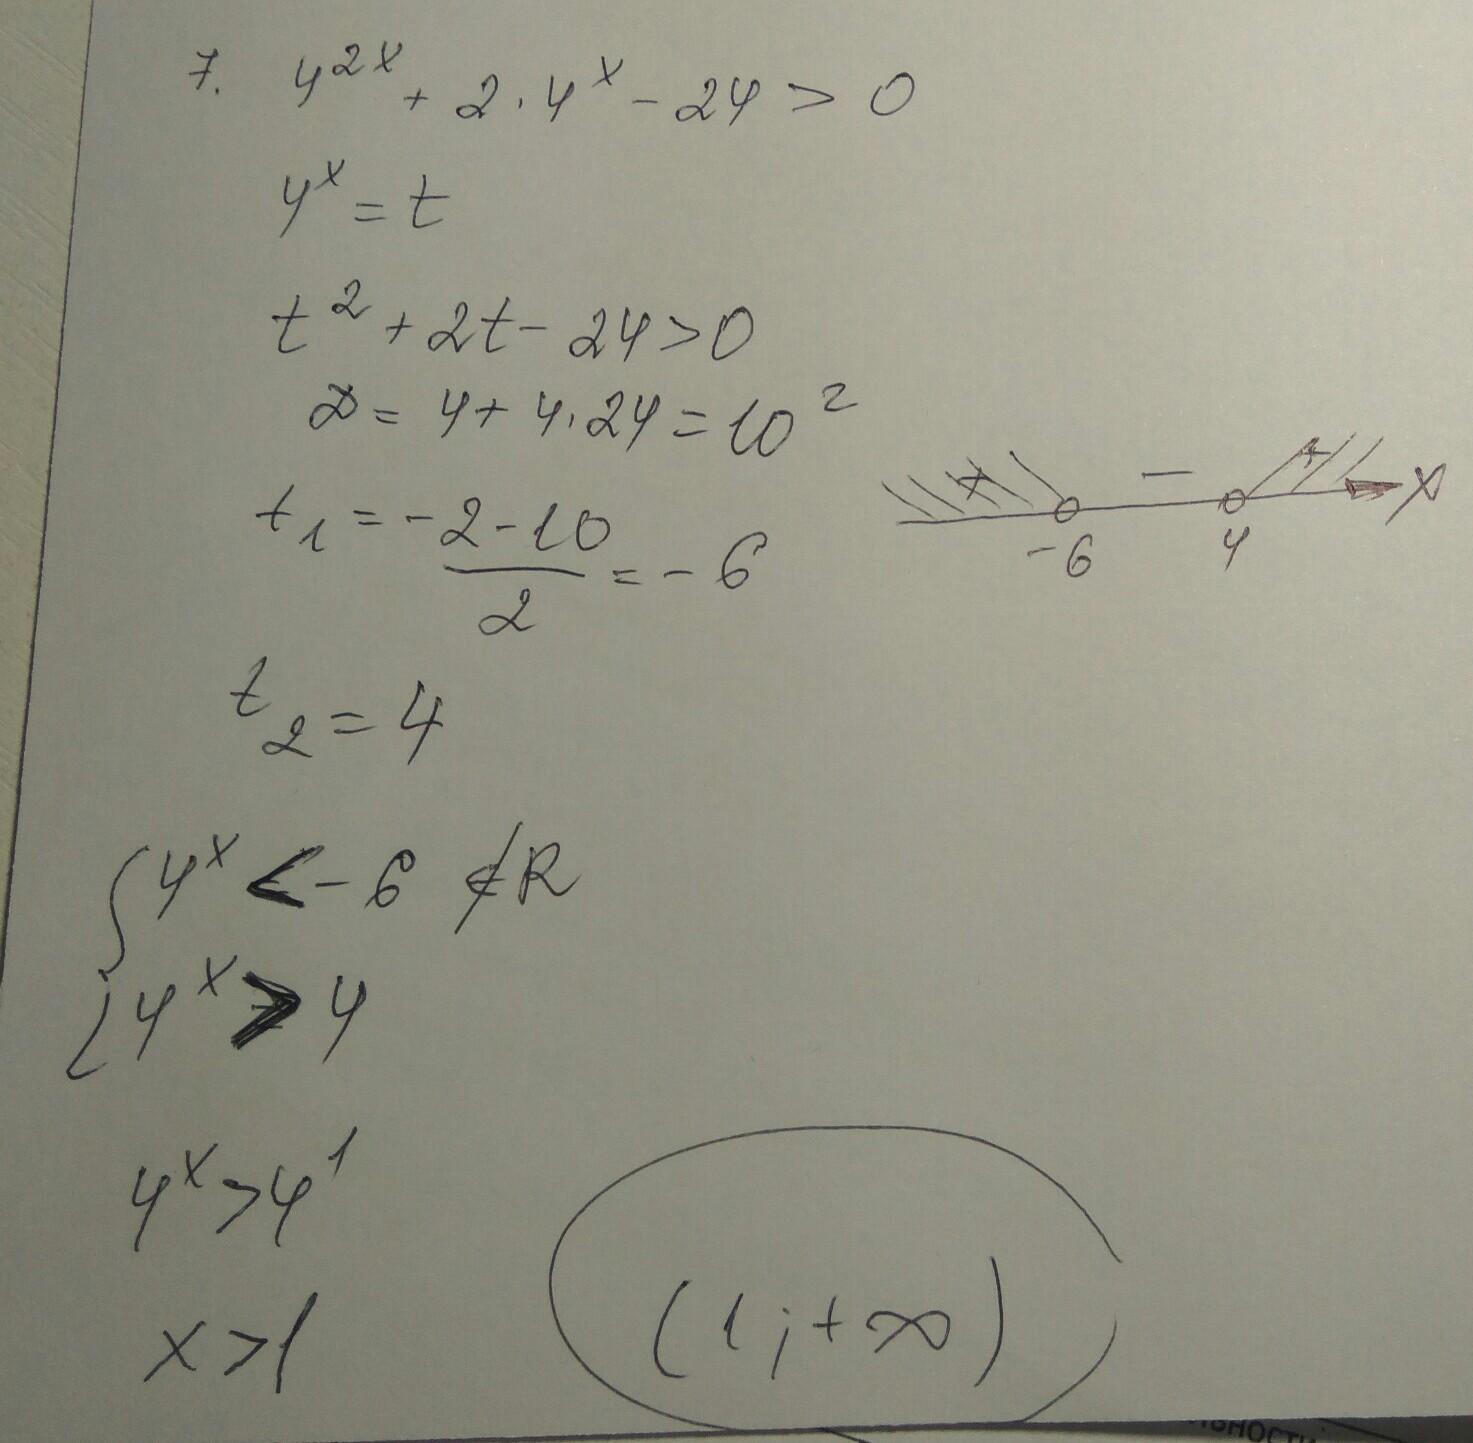 7. 4^{2x} + 2 · 4^x - 24 > 0
4^x = t
t^2 + 2t - 24 > 0
D = 4 + 4 · 24 = 10^2
t_1 = \frac{-2-10}{2} = -6
+ - + x
-6 4
t_2 = 4
4^x < -6 ∉ R
4^x > 4
4^x > 4^1
x > 1
(1; +∞)